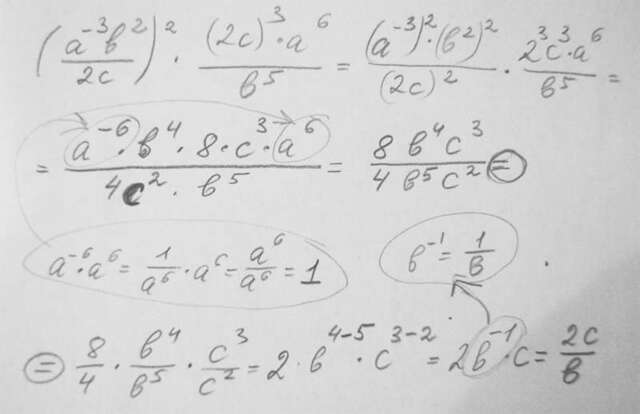 (a⁻³b²/2c)² · (2c)³·a⁶/b⁵ = (a⁻³)²·(b²)²/(2c)² · 2³c³·a⁶/b⁵ =
= a⁻⁶·b⁴·8·c³·a⁶/4c²·b⁵ = 8b⁴c³/4b⁵c² =
a⁻⁶·a⁶ = 1/a⁶·a⁶ = a⁶/a⁶ = 1 b⁻¹ = 1/b
= 8/4 · b⁴/b⁵ · c³/c² = 2·b⁴⁻⁵·c³⁻² = 2b⁻¹·c = 2c/b